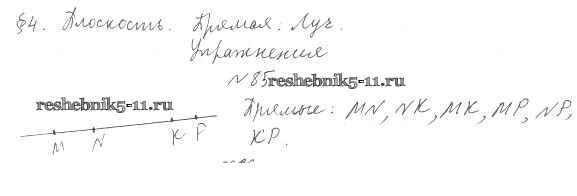 §4. Плоскость. Прямая. Луч.
Упражнения
№85
reshebnik5-11.ru
reshebnik5-11.ru
Прямые: MN, NK, MK, MP, NP,
KP.
M N K P